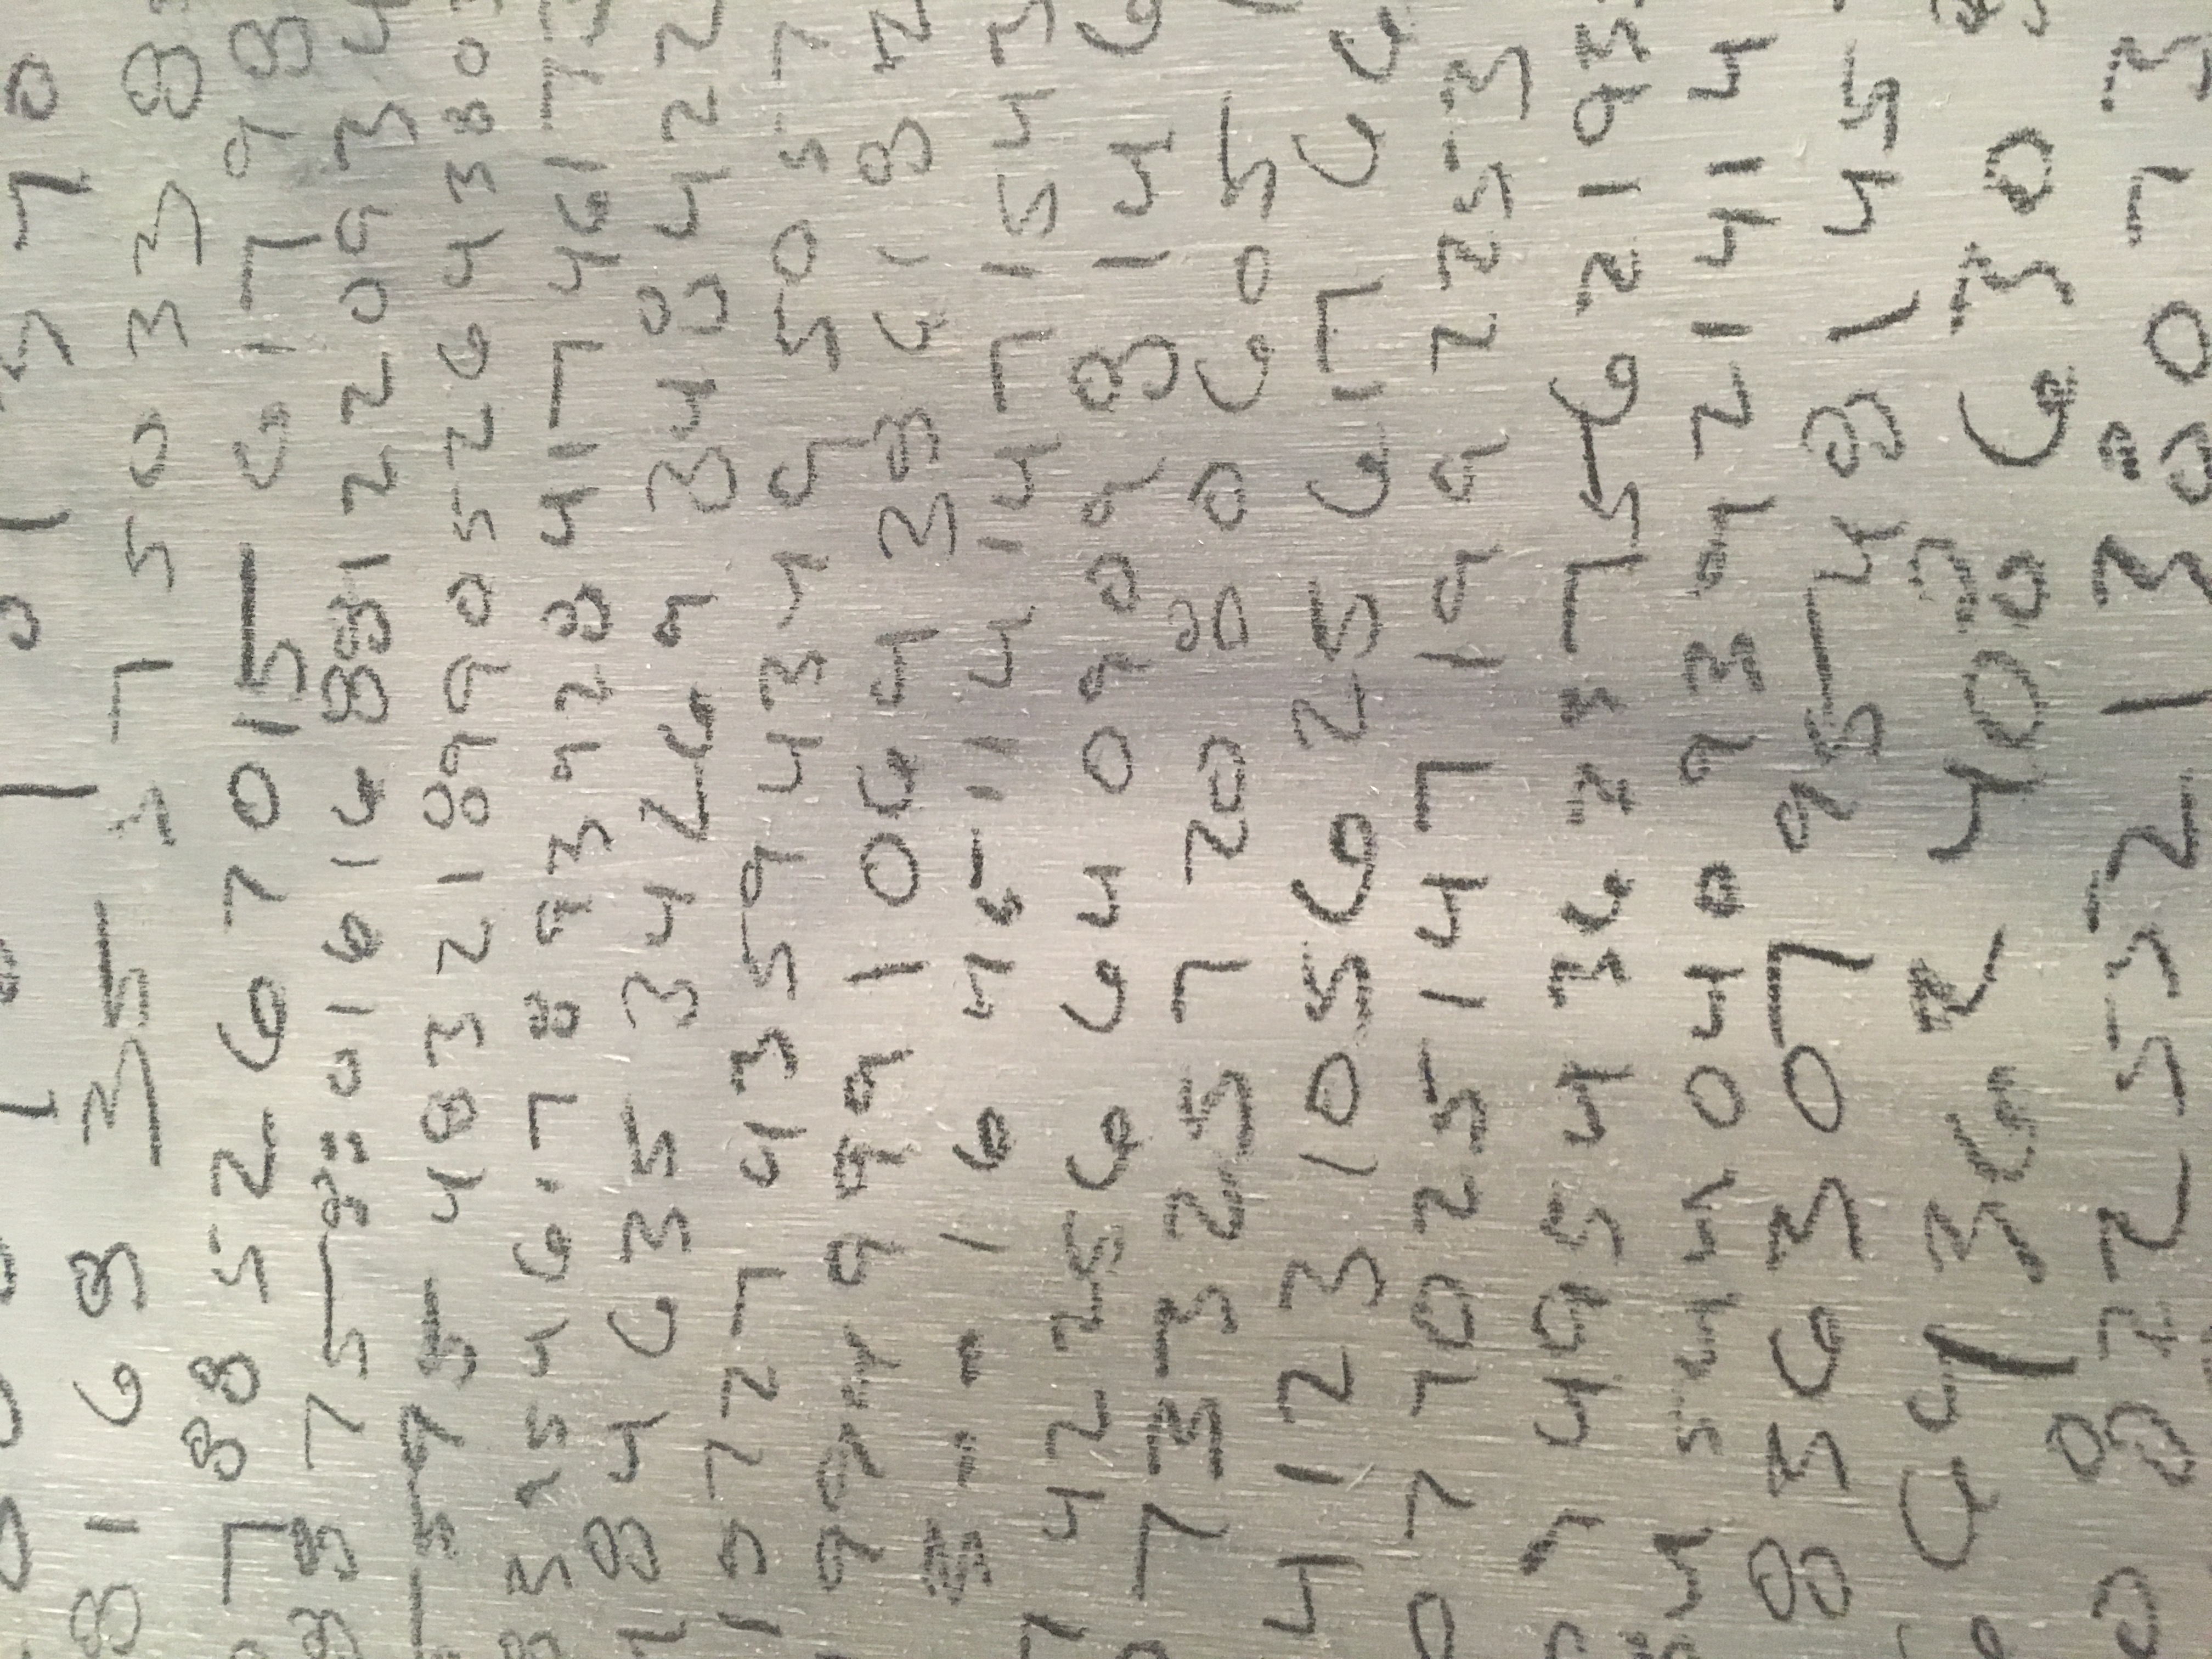 81 6 8 35 3 7 5 0 3 3 8
7 88 5 2 6 7 0 15 6 1 7 9 8
8 8 7 5 8 0 1 6 1 6 8 8 1 2 2 0 9 3 4
5 9 5 4 8 3 2 1 8 9 9 0 5 2 6 4 3 8 0
8 3 9 5 4 6 . 7 8 9 3 9 2 8 4 1 7 4 6 1 7
1 8 4 6 3 5 3 4 2 6 9 3 4 8 4 2 2
1 5 7 2 7 4 3 5 9 4 3 4 9 5 0 5 7
9 9 4 9 9 9 1 0 6 9 3 8 6 1 8 2
- - 1 6 4 5 1 1 4 1 4 7 1 5 4 3
7 4 2 2 5 6 6 4 0 9 0 9 8 1 4 6
7 3 3 2 5 7 2 0 8 0 6 0 5
4 1 2 3 1 0 5 6 2 5 6 1 7 6 6
0 7 7 0 2 5 1 4 7 1 9 9 2 2 5 3
7 4 9 5 4 3 6 2 3 7 5 6 2 1 9 3
4 5 4 4 0 4 0 9 3 9 2 1 4 1 4
8 3 6 3 0 7 9 5 4 8 1 4 5
6 9 3 6 2 4 0 8 6 3 0
0 8 2 2 5 3 2 1 3 8 0 7 3